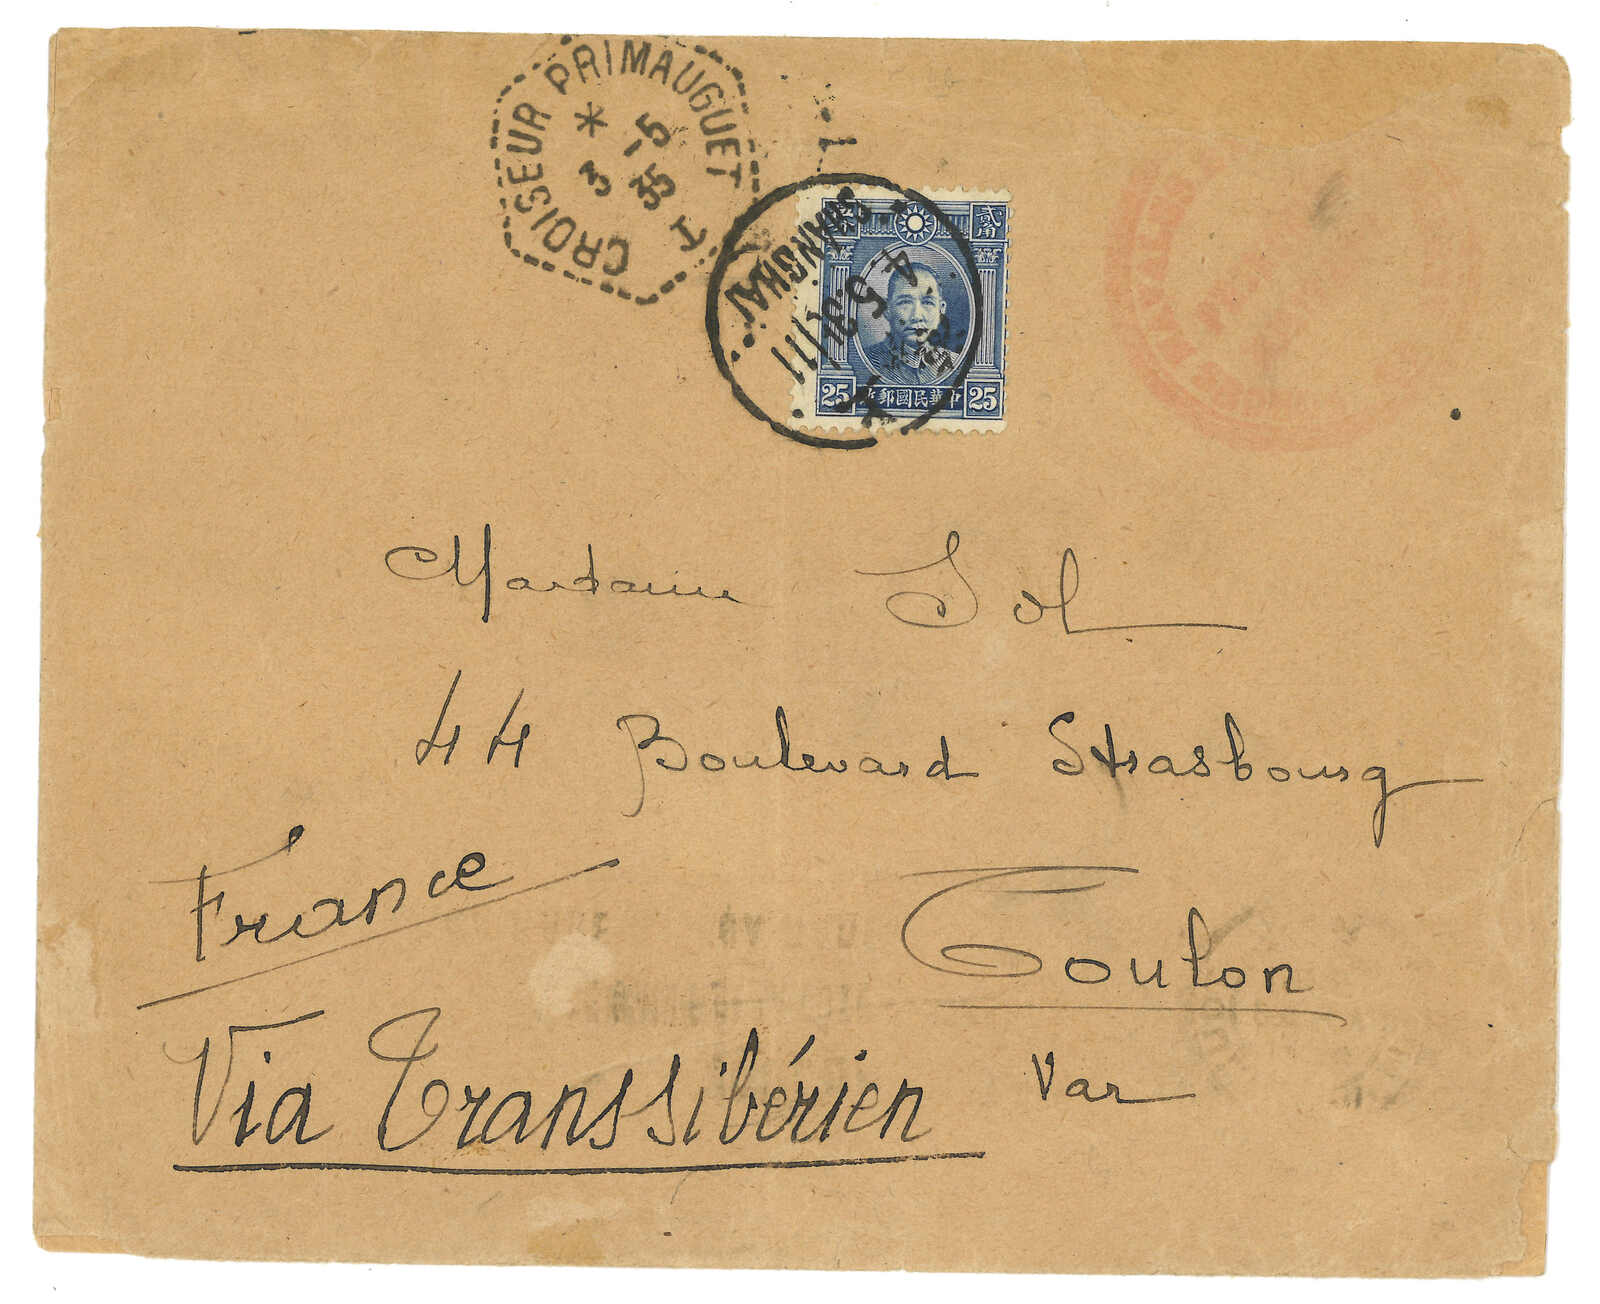 CROISEUR PRIMAUGUET
*
3 -5
35
SHANGHAI
4. 5.
25 中華民國郵 25
Madame Sol
44 Boulevard Strasbourg
Toulon
Var
France
Via Transsibérien